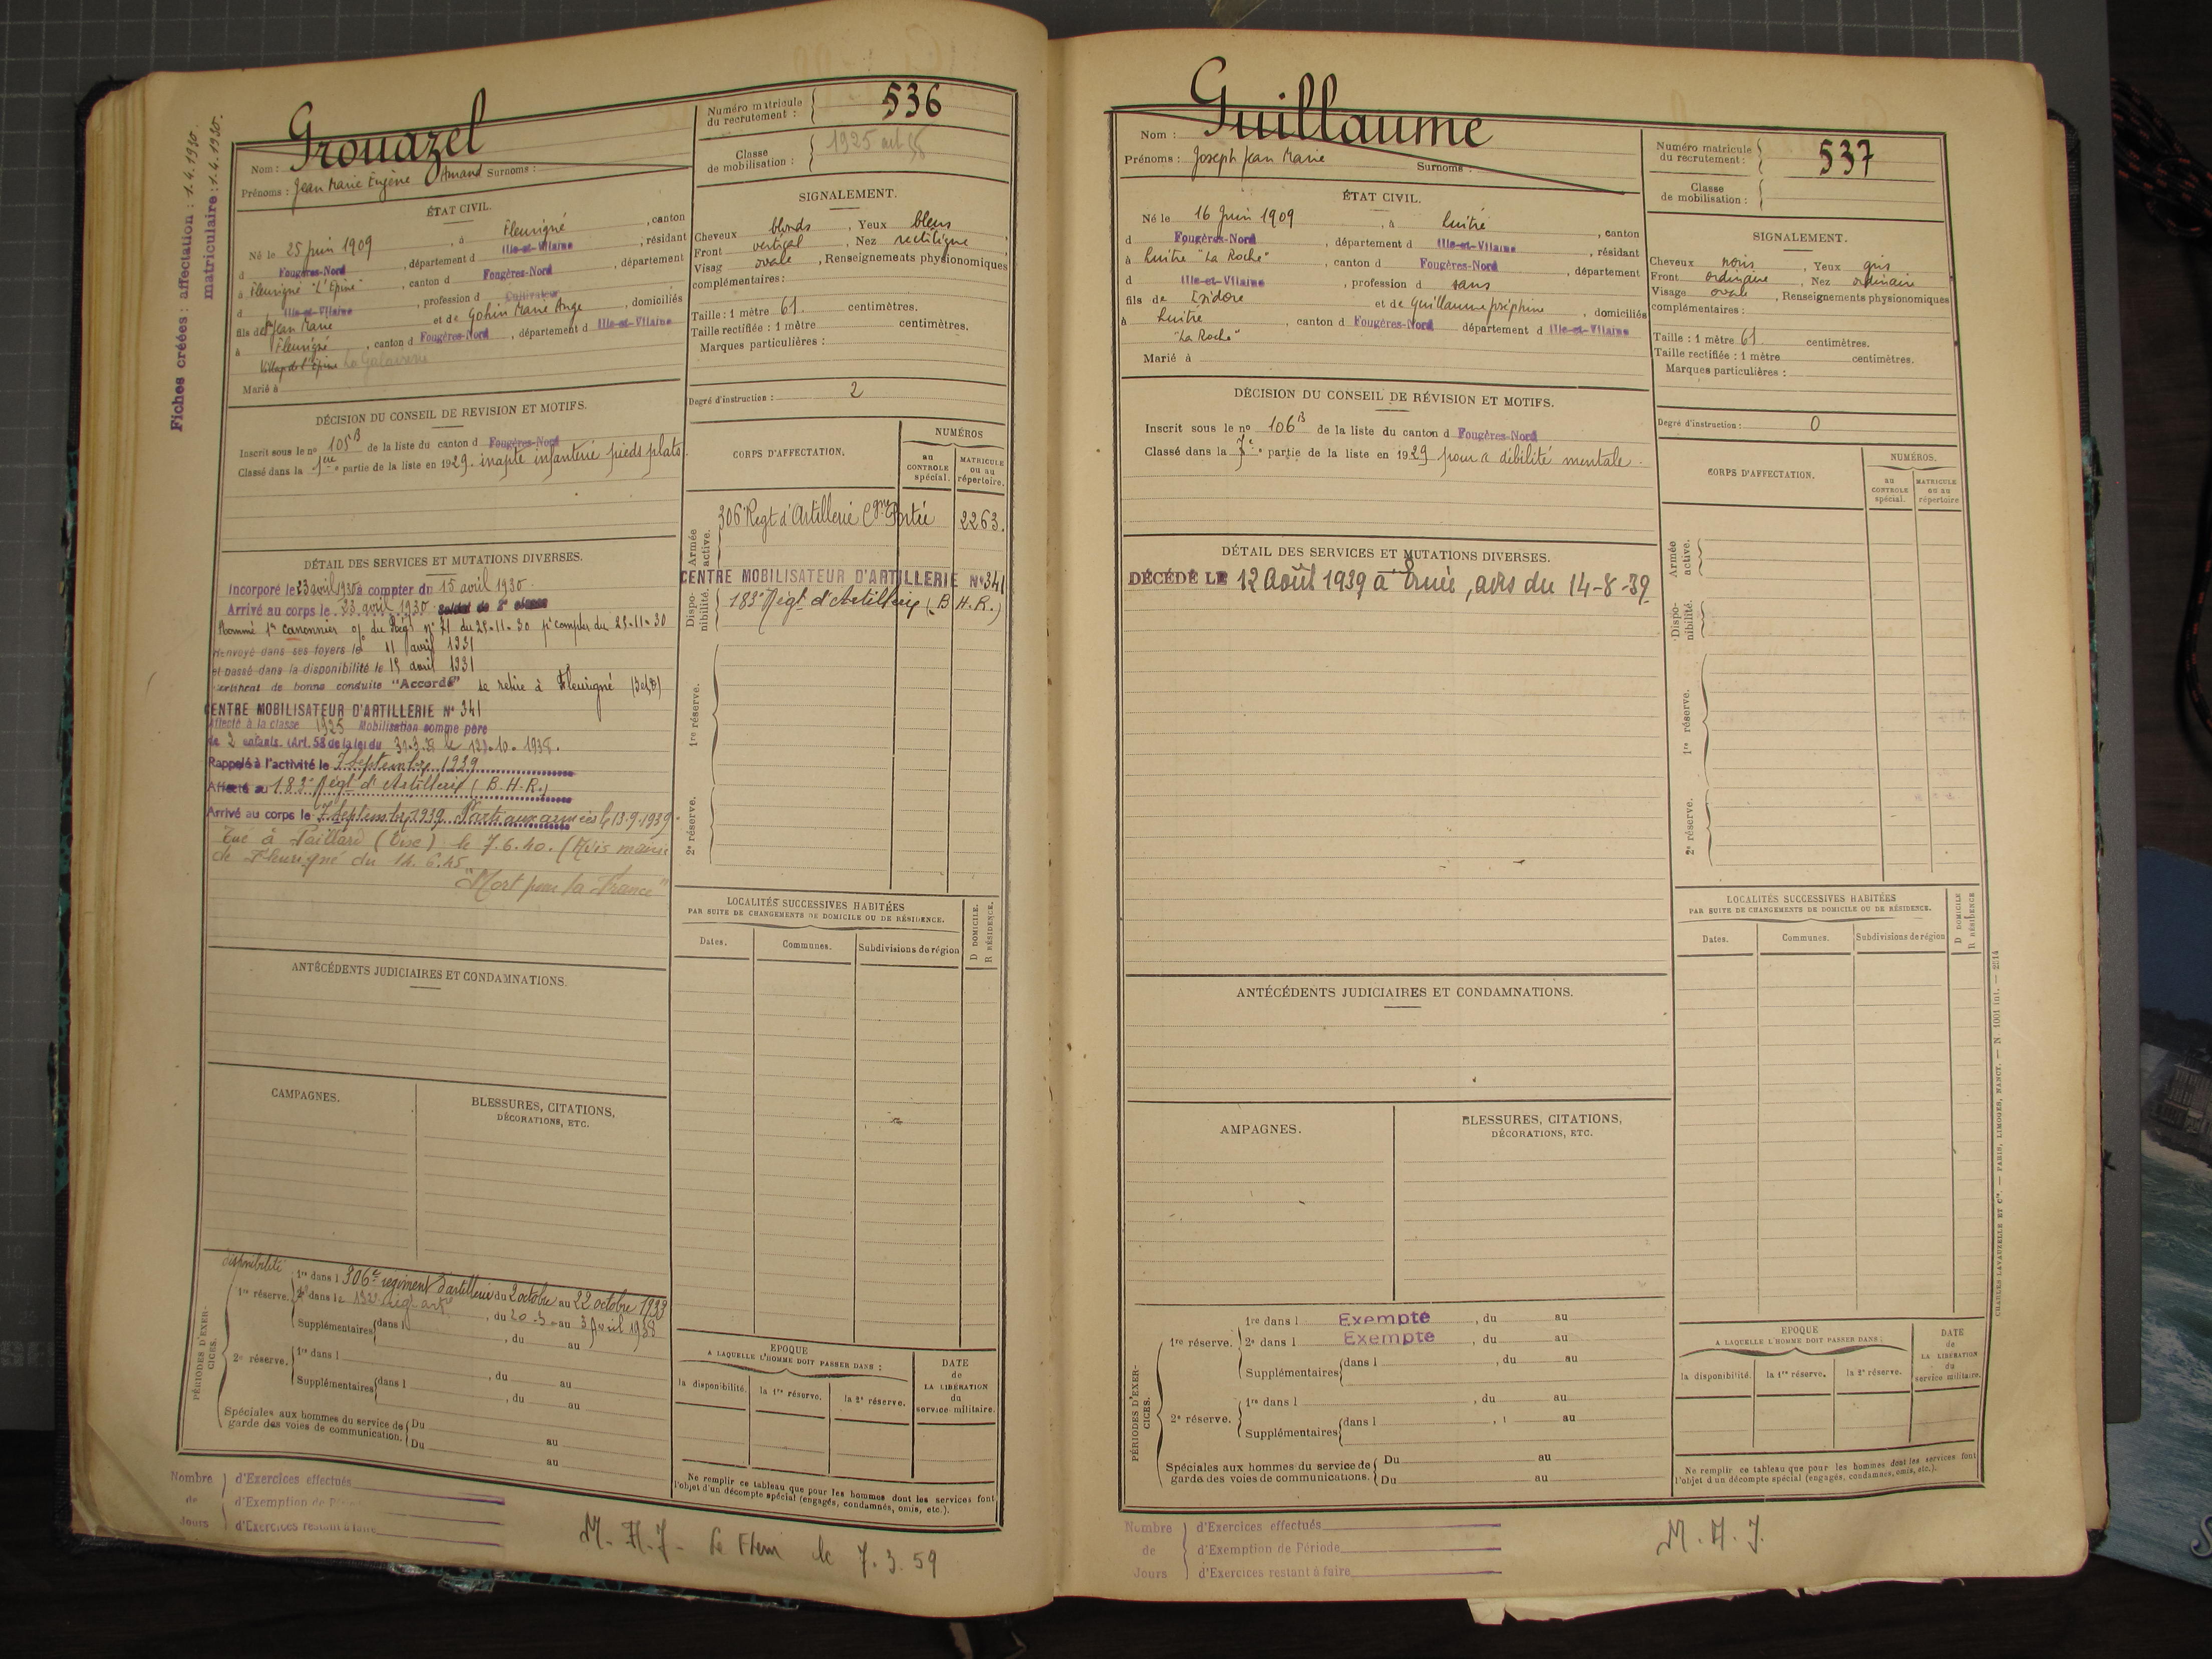 Fiches créées : affectation : 1.4.1930.
matriculaire : 1.4.1930.
Nom : Grouazel
Prénoms : Jean Marie Eugène Amand Surnoms :
Numéro matricule du recrutement : 536
Classe de mobilisation : 1925
ÉTAT CIVIL.
Né le 25 juin 1909, à Fleurigné, canton
d Fougères-Nord, département d Ille-et-Vilaine, résidant
à Fleurigné "L'Epine", canton d Fougères-Nord, département
d Ille-et-Vilaine, profession d Cultivateur
fils de Jean Marie et de Gohin Marie Ange, domiciliés
à Fleurigné, canton d Fougères-Nord, département d Ille-et-Vilaine
Village de l'Epine
Marié à
SIGNALEMENT.
Cheveux blonds, Yeux bleus
Front vertical, Nez rectiligne
Visag ovale, Renseignements physionomiques
complémentaires :
Taille : 1 mètre 61 centimètres.
Taille rectifiée : 1 mètre centimètres.
Marques particulières :
Degré d'instruction : 2
DÉCISION DU CONSEIL DE REVISION ET MOTIFS.
Inscrit sous le nº 105B de la liste du canton d Fougères-Nord
Classé dans la 1ère partie de la liste en 1929. inapte infanterie pieds plats.
CORPS D'AFFECTATION.
NUMÉROS
au CONTROLE spécial.
MATRICULE ou au répertoire.
Armée active.
306e Regt d'Artillerie Cgne Portée 2263.
CENTRE MOBILISATEUR D'ARTILLERIE Nº 341
Disponibilité.
183e Régt d'Artillerie (B.H.R.)
1re réserve.
2e réserve.
DÉTAIL DES SERVICES ET MUTATIONS DIVERSES.
Incorporé le 23 avril 1930 à compter du 15 avril 1930.
Arrivé au corps le 23 avril 1930 Soldat de 2e classe
Nommé 1er canonnier o/ du Régt nº 71 du 25-11-30 pr compter du 25-11-30
Renvoyé dans ses foyers le 11 avril 1931
et passé dans la disponibilité le 15 avril 1931
Certificat de bonne conduite "Accordé" se retire à Fleurigné
CENTRE MOBILISATEUR D'ARTILLERIE Nº 341
Affecté à la classe 1925 Mobilisation comme père
de 2 enfants. (Art. 58 de la loi du
Rappelé à l'activité le 7 Septembre 1939
Affecté au 183e Régt d'Artillerie (B.H.R.)
Arrivé au corps le 7 Septembre 1939 Parti aux armées le 13.9.1939.
Tué à Paillard (Oise) le 7.6.40. (Avis mairie
de Fleurigné du 14.6.45
"Mort pour la France"
ANTÉCÉDENTS JUDICIAIRES ET CONDAMNATIONS.
LOCALITÉS SUCCESSIVES HABITÉES
PAR SUITE DE CHANGEMENTS DE DOMICILE OU DE RÉSIDENCE.
Dates. Communes. Subdivisions de région
D DOMICILE. R RÉSIDENCE.
CAMPAGNES.
BLESSURES, CITATIONS,
DÉCORATIONS, ETC.
PÉRIODES D'EXERCICES.
disponibilité
1re réserve. 1re dans l 306e régiment d'artillerie du 2 octobre au 22 octobre 1933
2e dans le du 20-3 au 3 Avril 1938
Supplémentaires dans l , du au
2e réserve. 1re dans l , du au
Supplémentaires dans l , du au
Spéciales aux hommes du service de garde des voies de communication. Du au
Du au
EPOQUE
A LAQUELLE L'HOMME DOIT PASSER DANS :
la disponibilité. la 1re réserve. la 2e réserve.
DATE de LA LIBÉRATION du service militaire.
Ne remplir ce tableau que pour les hommes dont les services font
l'objet d'un décompte spécial (engagés, condamnés, omis, etc.).
Nombre de Jours
d'Exercices effectués
d'Exemption de Période
d'Exercices restant à faire
le 7.3.59
Nom : Guillaume
Prénoms : Joseph Jean Marie Surnoms :
Numéro matricule du recrutement : 537
Classe de mobilisation :
ÉTAT CIVIL.
Né le 16 juin 1909, à Luitré, canton
d Fougères-Nord, département d Ille-et-Vilaine, résidant
à Luitré "La Roche", canton d Fougères-Nord, département
d Ille-et-Vilaine, profession d sans
fils de Isidore et de Guillaume Joséphine, domiciliés
à Luitré, canton d Fougères-Nord département d Ille-et-Vilaine
"La Roche"
Marié à
SIGNALEMENT.
Cheveux noirs, Yeux gris
Front ordinaire, Nez ordinaire
Visage ovale, Renseignements physionomiques
complémentaires :
Taille : 1 mètre 61 centimètres.
Taille rectifiée : 1 mètre centimètres.
Marques particulières :
Degré d'instruction : 0
DÉCISION DU CONSEIL DE RÉVISION ET MOTIFS.
Inscrit sous le nº 106B de la liste du canton d Fougères-Nord
Classé dans la 7e partie de la liste en 1929 pour a débilité mentale.
CORPS D'AFFECTATION.
NUMÉROS.
au CONTROLE spécial.
MATRICULE ou au répertoire
Armée active.
Disponibilité.
1re réserve.
2e réserve.
DÉTAIL DES SERVICES ET MUTATIONS DIVERSES.
DÉCÉDÉ LE 12 Août 1939 à Ernée, avis du 14-8-39
ANTÉCÉDENTS JUDICIAIRES ET CONDAMNATIONS.
LOCALITÉS SUCCESSIVES HABITÉES
PAR SUITE DE CHANGEMENTS DE DOMICILE OU DE RÉSIDENCE.
Dates. Communes. Subdivisions de région
D DOMICILE R RÉSIDENCE
AMPAGNES.
BLESSURES, CITATIONS,
DÉCORATIONS, ETC.
PÉRIODES D'EXERCICES.
1re réserve. 1re dans l Exempté, du au
2e dans l Exempté, du au
Supplémentaires dans l , du au
2e réserve. 1re dans l , du au
Supplémentaires dans l au
Spéciales aux hommes du service de garde des voies de communications. Du au
Du au
EPOQUE
A LAQUELLE L'HOMME DOIT PASSER DANS :
la disponibilité. la 1re réserve. la 2e réserve.
DATE de LA LIBÉRATION du service militaire.
Ne remplir ce tableau que pour les hommes dont les services font
l'objet d'un décompte spécial (engagés, condamnés, omis, etc.).
CHARLES LAVAUZELLE ET Cie. — PARIS, LIMOGES, NANCY. — N 1001 int. — 2514
Nombre de Jours
d'Exercices effectués
d'Exemption de Période
d'Exercices restant à faire